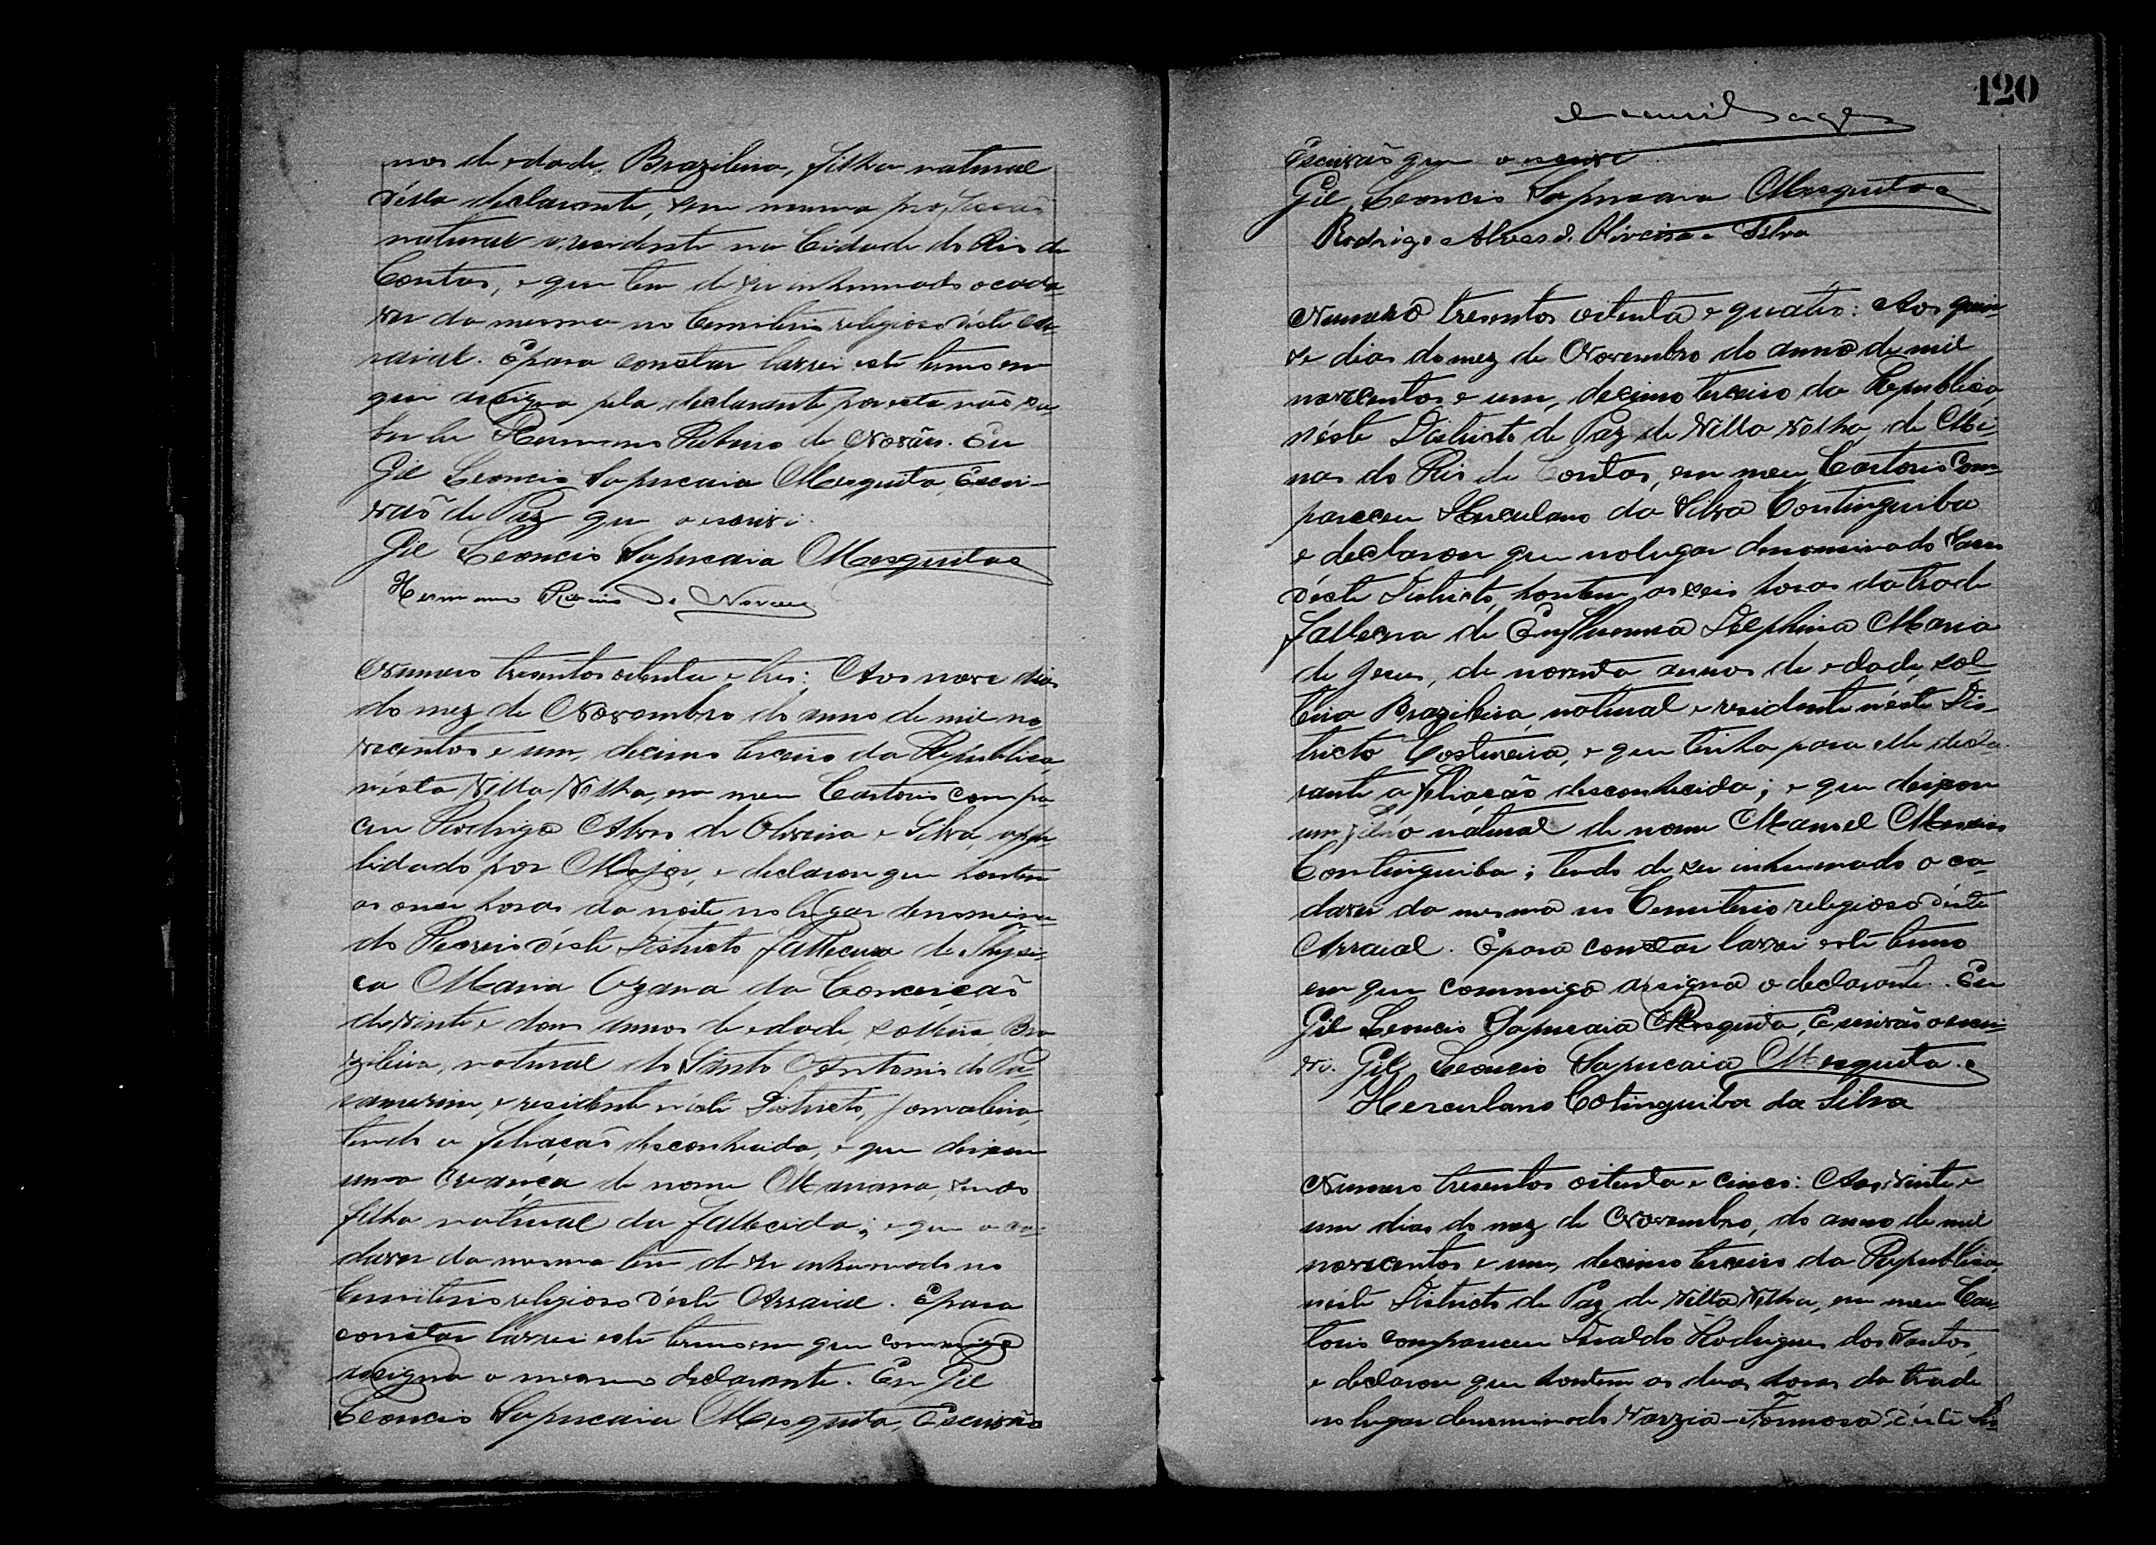 nos de edade, Brazileira, filha natural
désta declarante, sem nenuma profissão
natural e residente na Cidade do Rio de
Contas, e que tem de ser inhumado o cada-
ver da mesma no Cemiterio religioso déste Ar-
raial. E para constar lavrei este termo em
que assigna pela declarante por esta não sa-
ber ler Hermano Ribeiro de Novães. Eu
Gil Leoncio Sapucaia Mesquita, Escri-
vaõ de Paz que o escrivi.
Gil Leoncio Sapucaia Mesquita
Hermano Ribeiro de Novaes
Numero tresentos oitenta e tres: Aos nove dias
do mez de Novembro do anno de mil no-
vecentos e um, decimo terceiro da Republica,
nésta Villa Velha, em meu Cartorio compa-
ceu Rodrigo Alves de Oliveira e Silva, appe-
lidado por Major, e declarou que hontem
as onze horas da noite no lugar denomina-
do déste Districto falleceu de Thysi-
ca Maria Ozana da Conceição
de vinte e dous annos de edade, solteira, Bra-
zileira, natural do Santo Antonio do Pa-
ramerim, e residente néste Districto, jornaleira,
tendo a filiação desconhecida, e que deixou
uma creança de nome Mariana, sendo
filha natural da fallecida; e que o ca-
daver da mesma tem de ser inhumado no
Cemiterio religioso déste Arraial. E para
constar lavrei este termo em que commigo
assigna o mesmo declarante. Eu Gil
Leoncio Sapucaia Mesquita, Escrivão
120
Escrivão que o escrivi
Gil Leoncio Sapucaia Mesquita
Rodrigo Alves d. Oliveira e Silva
Numero tresentos oitenta e quatro: Aos quin-
ze dias do mez de Novembro do anno de mil
novecentos e um, decimo terceiro da Republica
néste Districto de Paz de Villa Velha, de Mi-
nas do Rio de Contas, em meu Cartorio com-
pareceu Herculano da Silva Continguiba
e declarou que no lugar denominado
déste Districto, hontem, as seis horas da trade
falleceu de Delphina Maria
de Jesus, de noventa annos de edade, sol-
teira Brazileira, natural e residente néste Dis-
tricto Costureira, e que tinha para elle decla-
rante a filiação desconhecida; e que deixou
um filho natural de nome Manoel
Continguiba; tendo de ser inhumado o ca-
daver da mesma no Cemiterio religioso déste
Arraial. E para constar lavrei este termo
em que commigo assigna o declarante. Eu
Gil Leoncio Sapucaia Mesquita, Escrivão o escri-
vi. Gil Leoncio Sapucaia Mesquita.
Herculano Cotinguiba da Silva
Numero tresentos oitenta e cinco: Aos vinte e
um dias do mez de Novembro, do anno de mil
novecentos e um, decimo terceiro da Republica,
néste Districto de Paz de Villa Velha, em meu Car-
torio compareceu Rodrigues dos Santos,
e declarou que hontem as duas horas da trade
no lugar denominado Varzia-Formosa déste Dis-